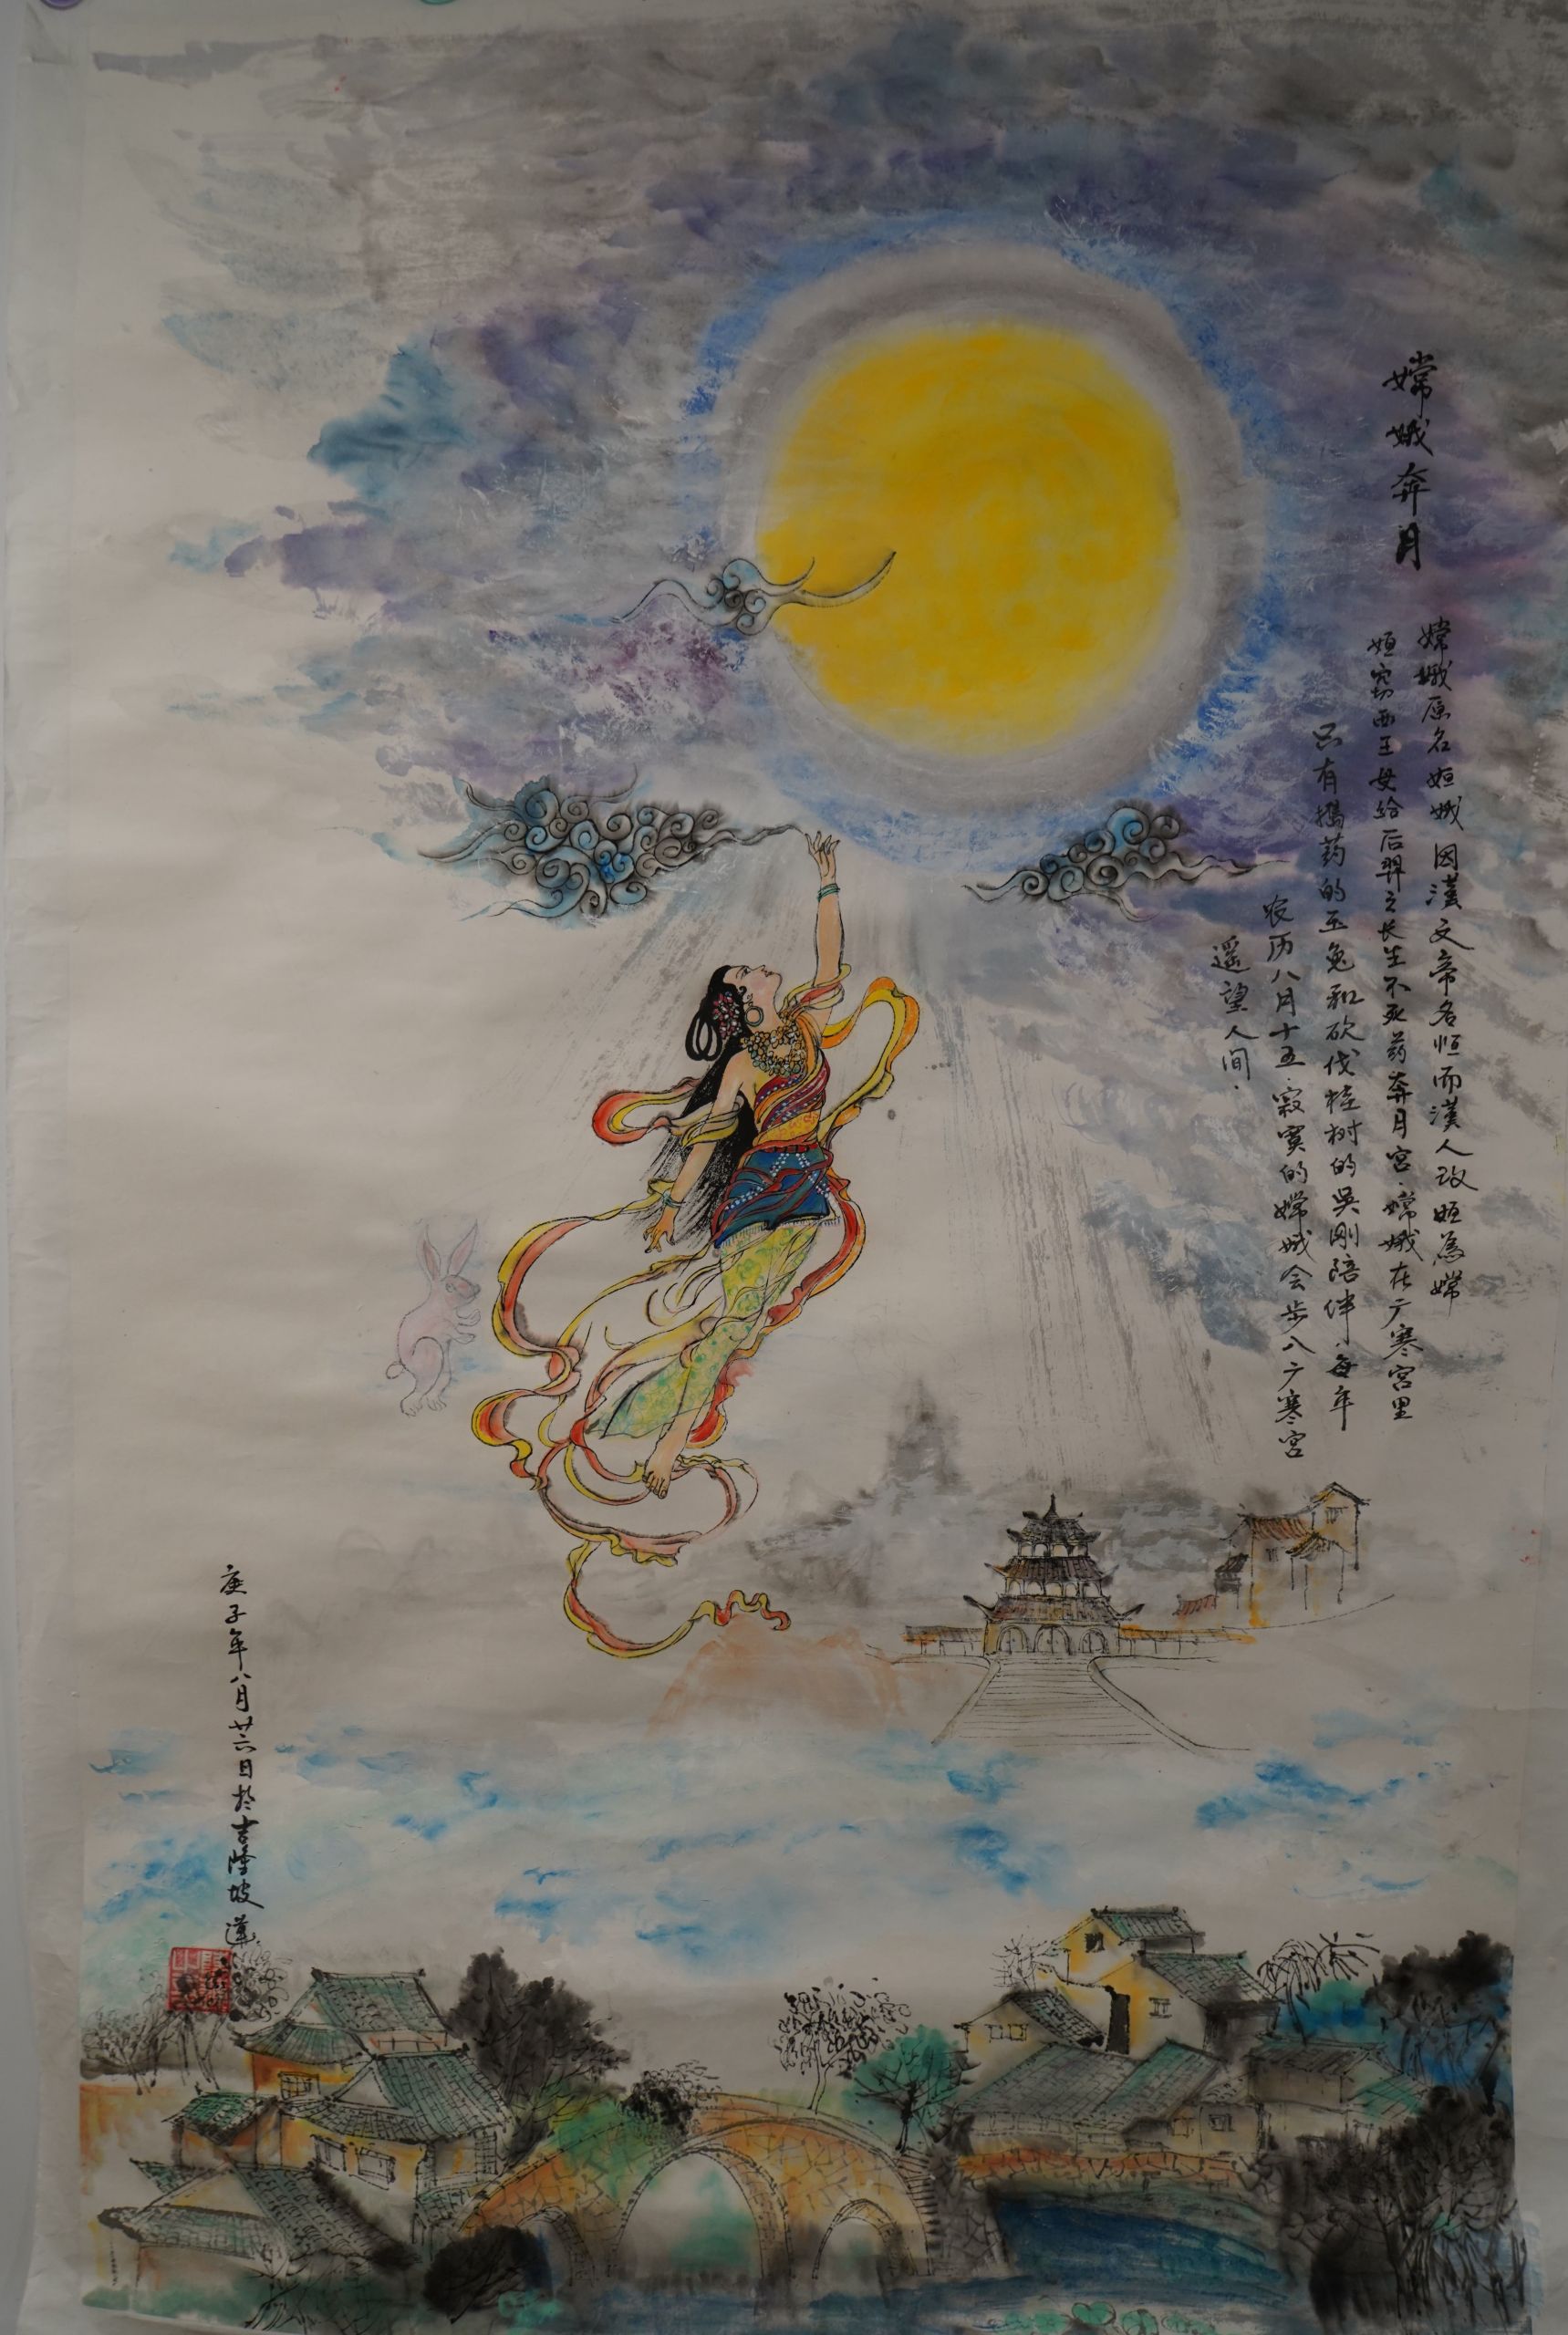 嫦娥奔月
嫦娥原名姮娥因漢文帝名恒而漢人改姮為嫦
姮窃西王母给后羿之长生不死药奔月宫.嫦娥在广寒宫里
只有搗药的玉兔和砍伐桂树的吴刚陪伴,每年
农历八月十五.寂寞的嫦娥会步入广寒宫
遥望人间.
庚子年八月廿六日於吉隆坡 蓮